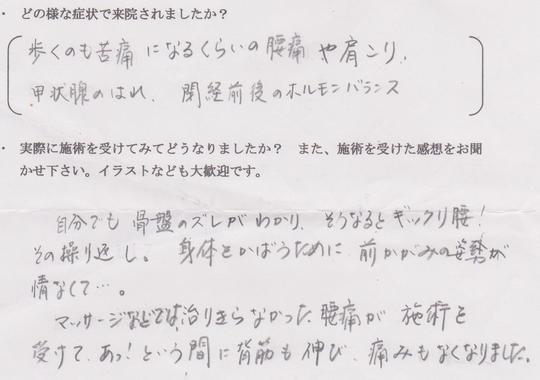 ・ どの様な症状で来院されましたか？
歩くのも苦痛になるくらいの腰痛や肩こり、
甲状腺のはれ、閉経前後のホルモンバランス
・ 実際に施術を受けてみてどうなりましたか？ また、施術を受けた感想をお聞
かせ下さい。イラストなども大歓迎です。
自分でも骨盤のズレがわかり、そうなるとギックリ腰！
その繰り返し。身体をかばうために前かがみの姿勢が
情なくて…。
マッサージなどでは治りきらなかった腰痛が施術を
受けて、あっ！という間に背筋も伸び、痛みもなくなりました。